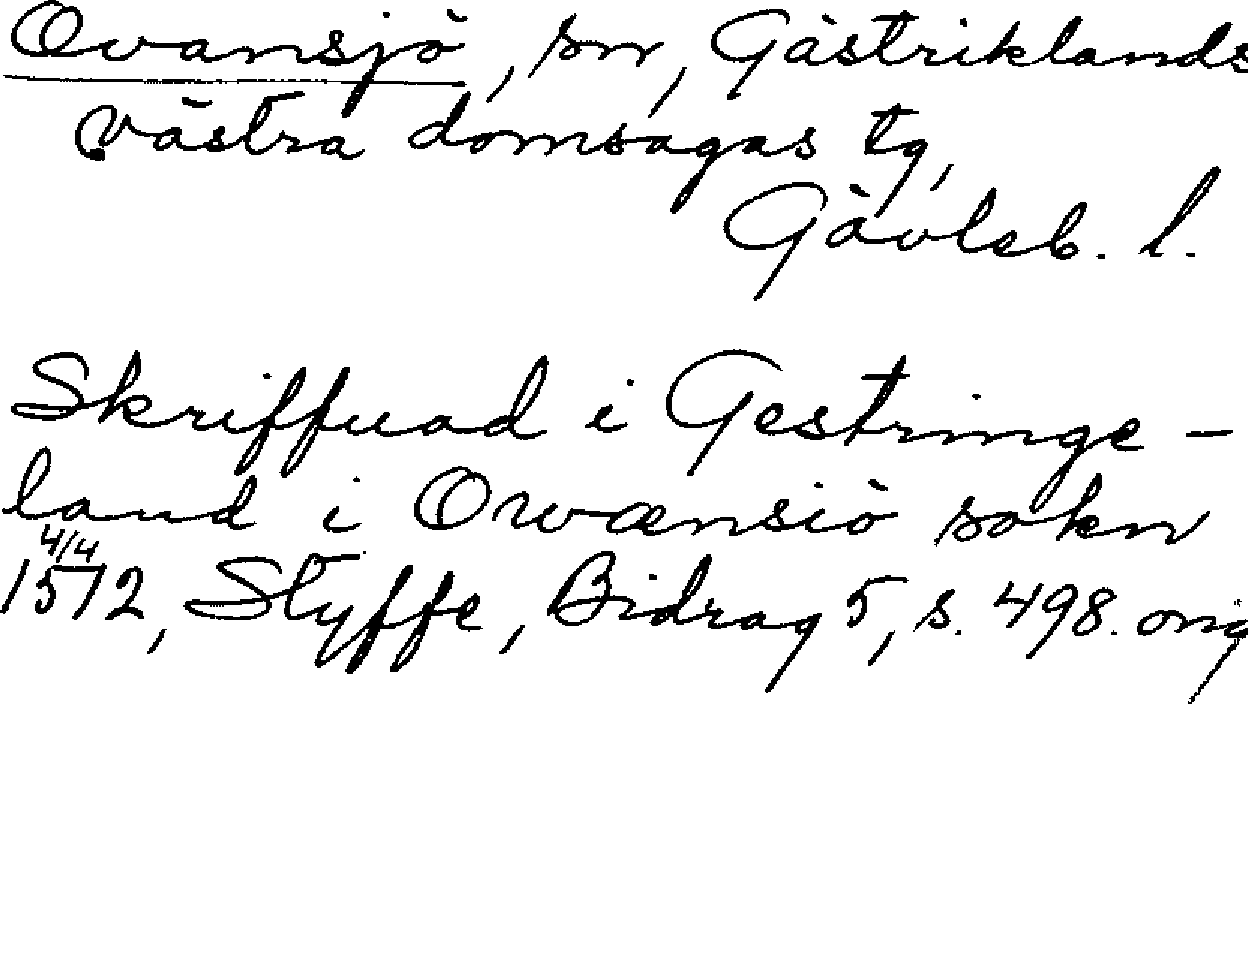 Ovansjö, sn, Gästriklands
västra domsagas tg,
Gävleb. l.
Skriffuad i Gestringe-
land i Owænsiö sokn
4/4
1512, Styffe, Bidrag 5, s. 498. orig